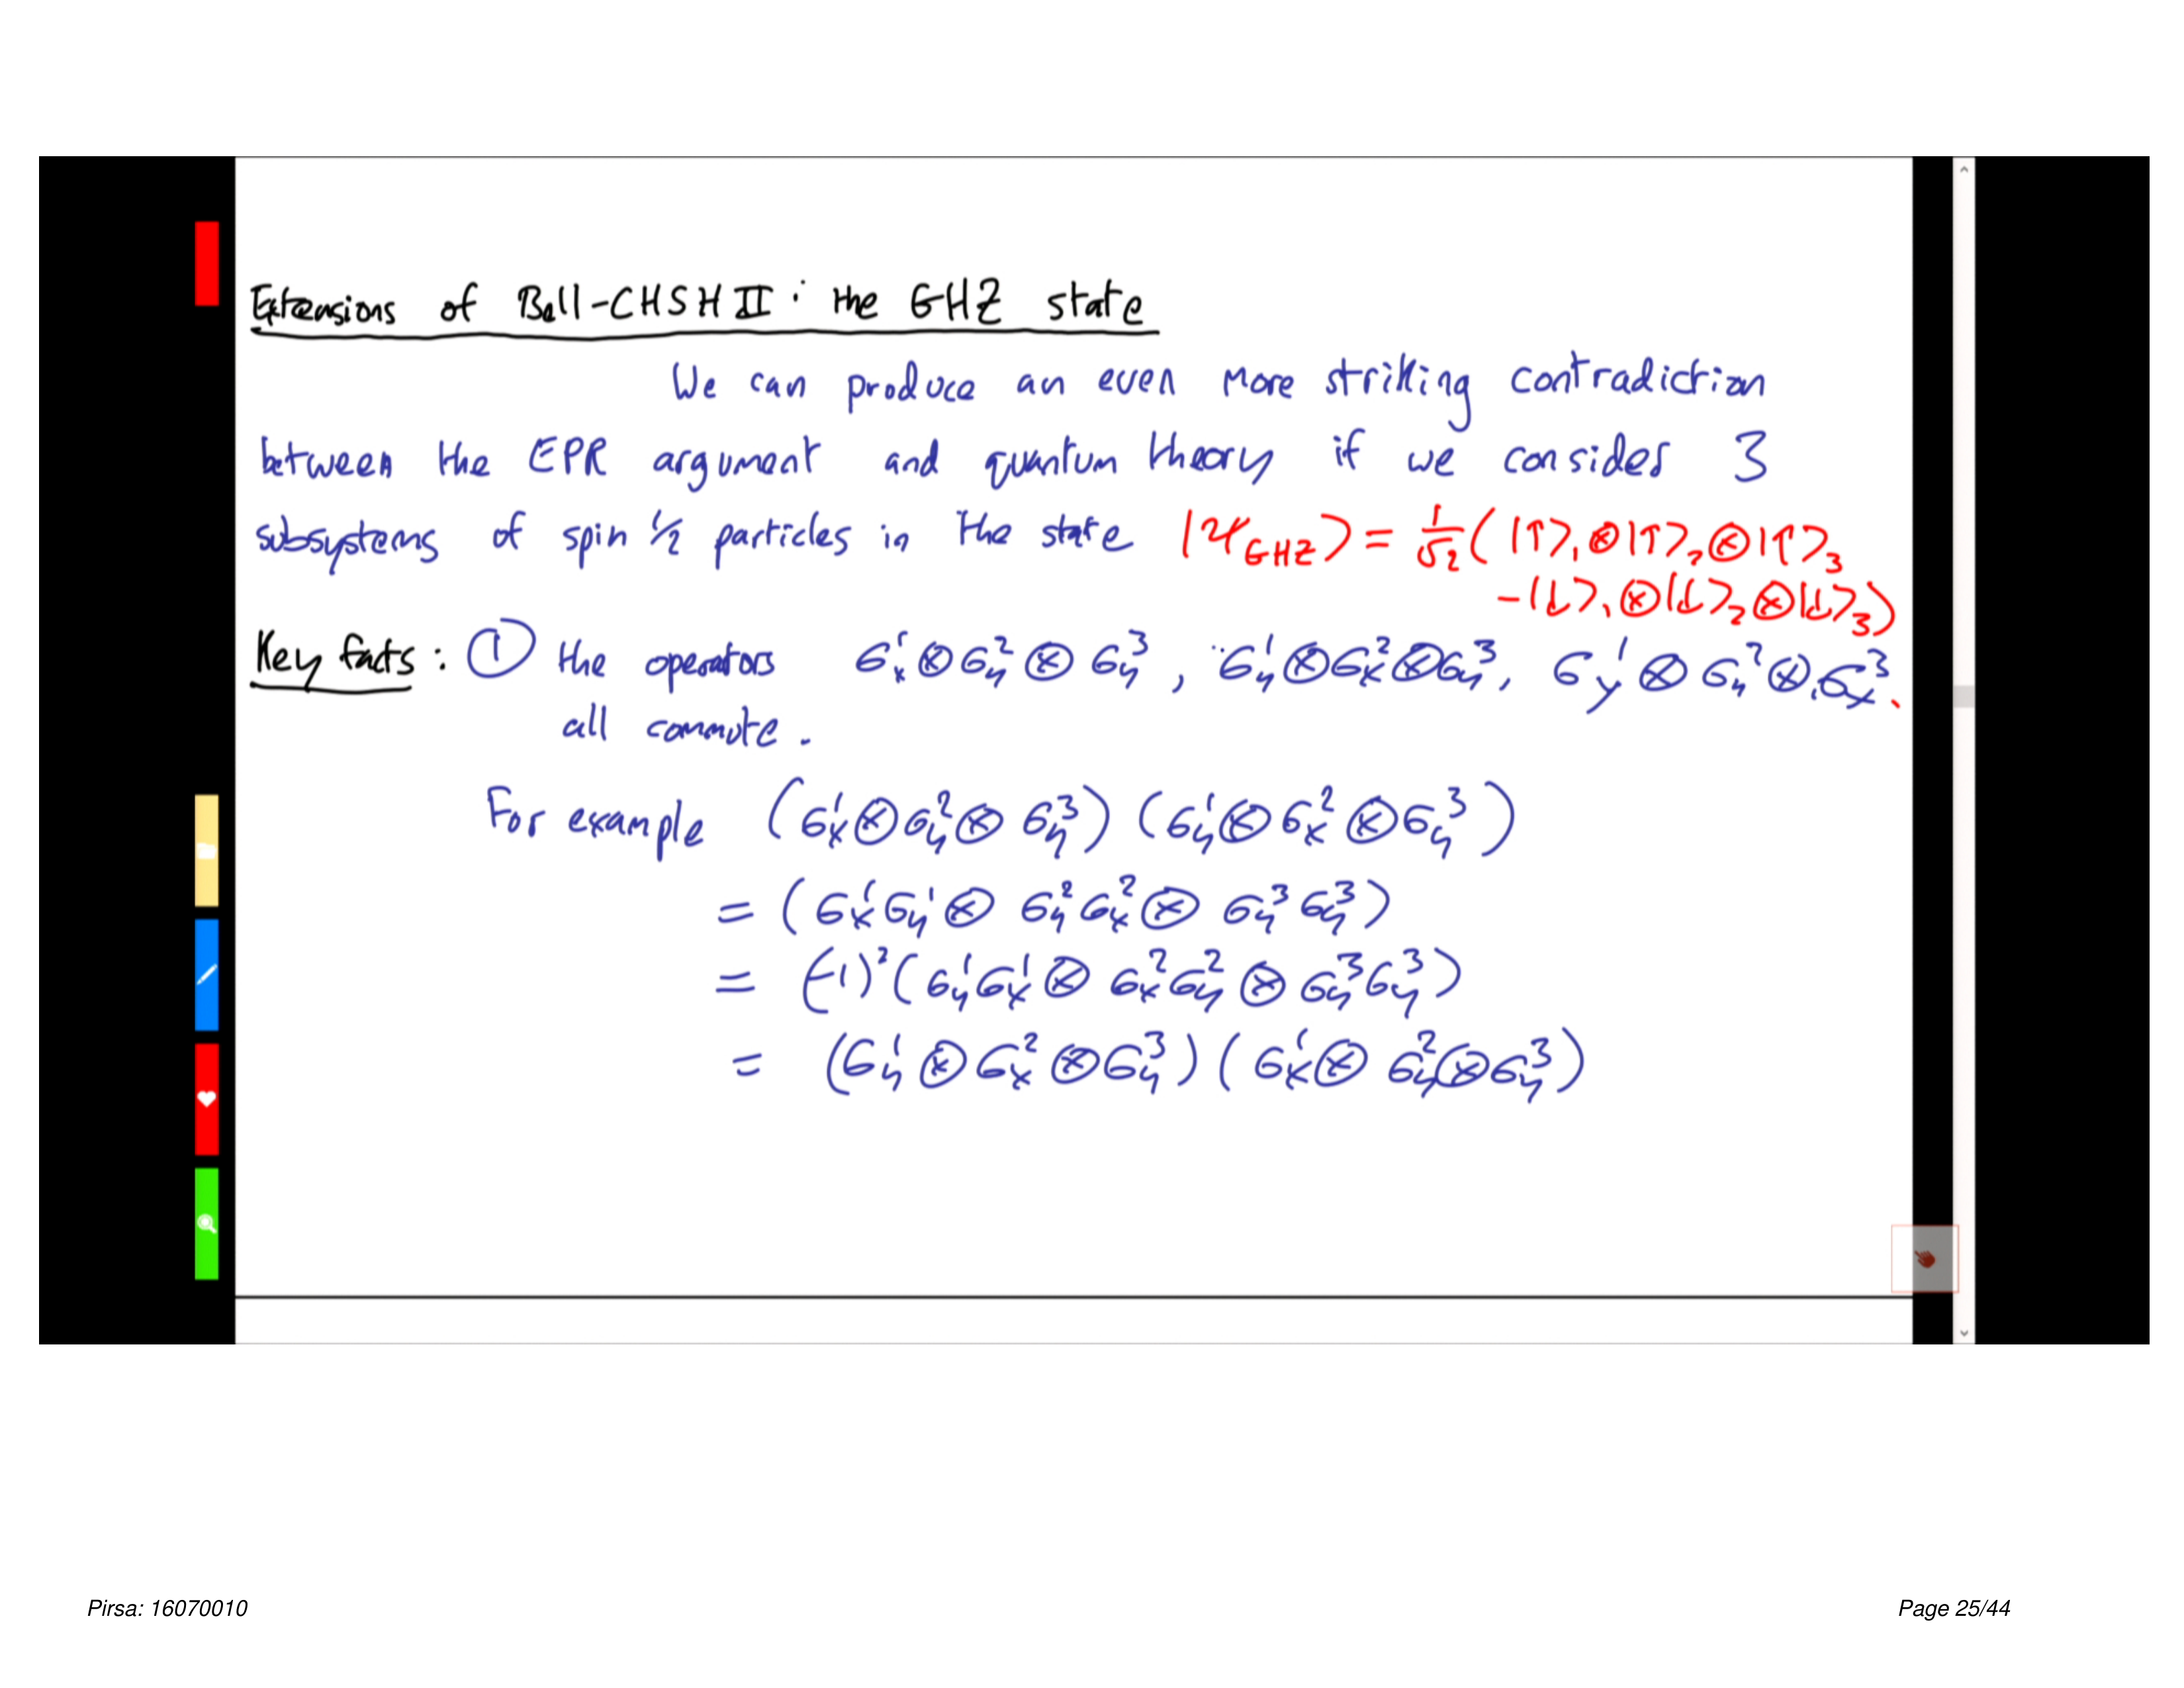 Extensions of Bell-CHSH II: the GHZ state
We can produce an even more striking contradiction
between the EPR argument and quantum theory if we consider 3
subsystems of spin ½ particles in the state |Ψ_GHZ⟩ = 1/√2 (|↑⟩₁⊗|↑⟩₂⊗|↑⟩₃
-|↓⟩₁⊗|↓⟩₂⊗|↓⟩₃)
Key facts: ① the operators σₓ¹⊗σᵧ²⊗σᵧ³, σᵧ¹⊗σₓ²⊗σᵧ³, σᵧ¹⊗σᵧ²⊗σₓ³.
all commute.
For example (σₓ¹⊗σᵧ²⊗σᵧ³)(σᵧ¹⊗σₓ²⊗σᵧ³)
= (σₓ¹σᵧ¹⊗σᵧ²σₓ²⊗σᵧ³σᵧ³)
= (-1)²(σᵧ¹σₓ¹⊗σₓ²σᵧ²⊗σᵧ³σᵧ³)
= (σᵧ¹⊗σₓ²⊗σᵧ³)(σₓ¹⊗σᵧ²⊗σᵧ³)
Pirsa: 16070010
Page 25/44